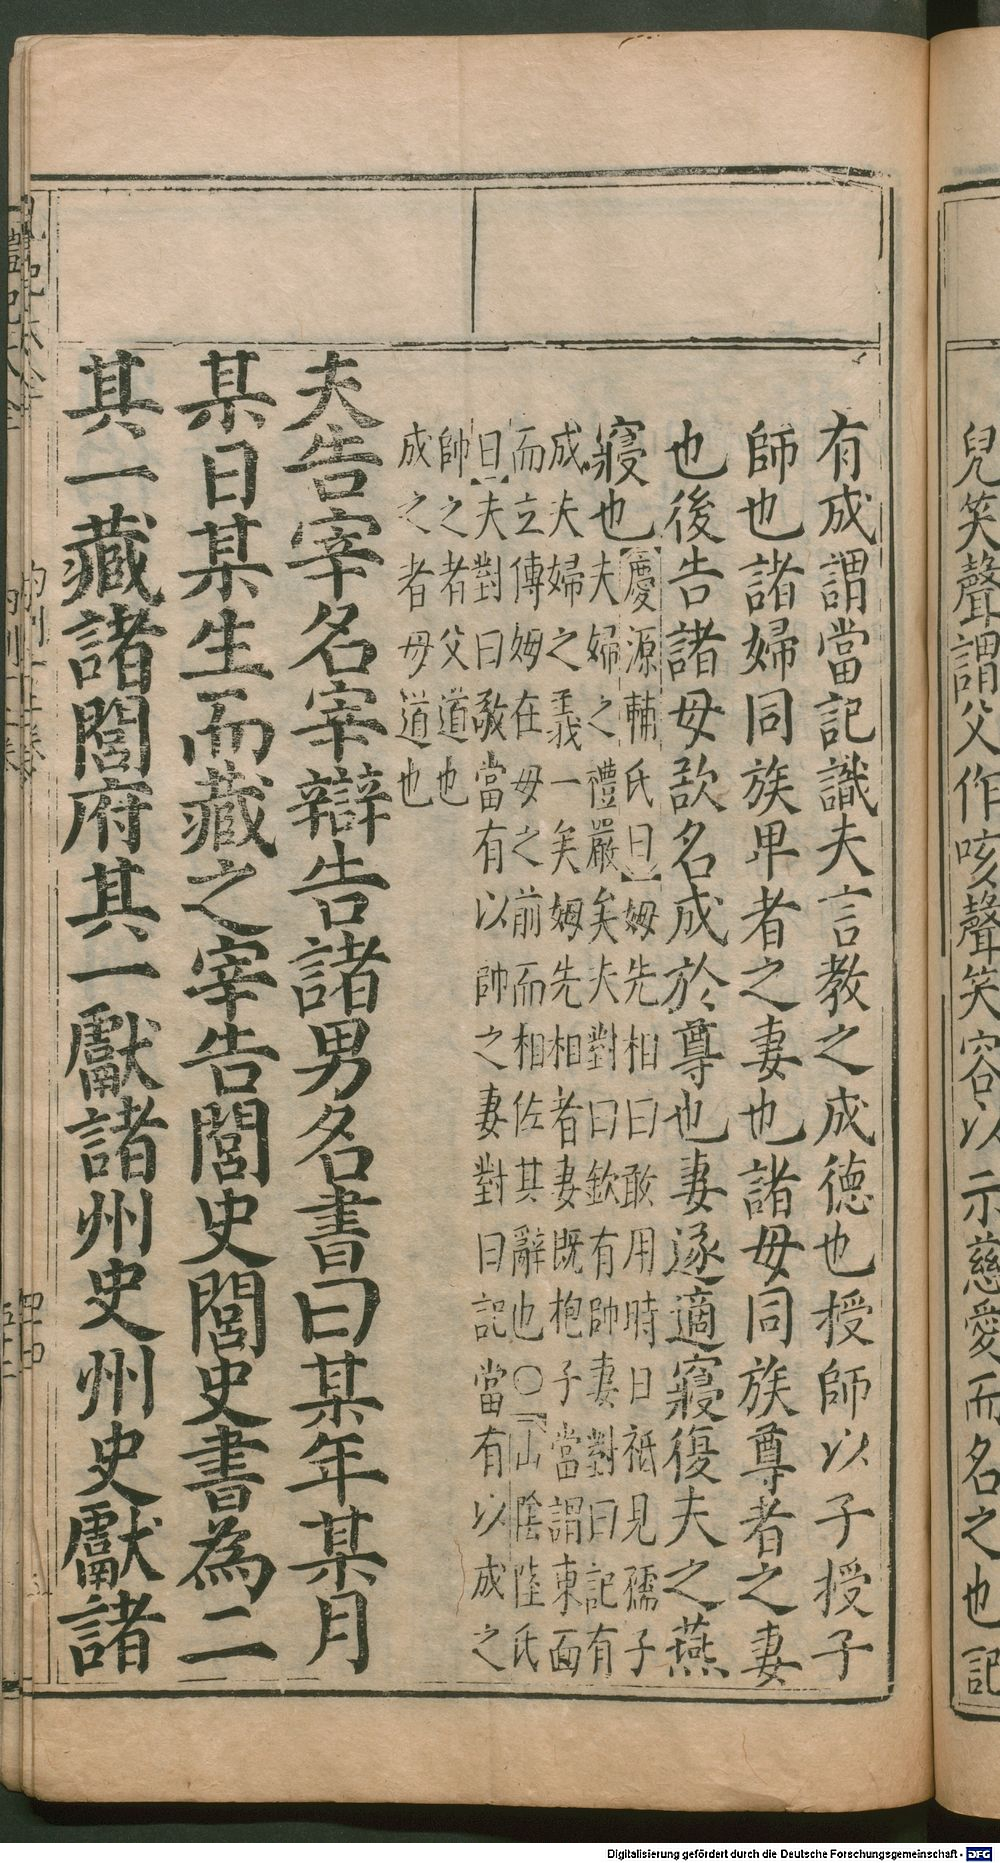 兒笑聲謂父作咳聲笑容以示慈愛而名之也記
有成謂當記識夫言教之成德也授師以子授子
師也諸婦同族卑者之妻也諸母同族尊者之妻
也後告諸母欲名成於尊也妻遂適寢復夫之燕
寢也
慶源輔氏曰姆先相曰敢用時日祇見孺子
夫婦之禮嚴矣夫對曰欽有帥妻對曰記有
成夫婦之義一矣姆先相者妻既抱子當謂東面
而立傳姆在母之前而相佐其辭也○山陰陸氏
曰夫對曰敎當有以帥之妻對曰記當有以成之
帥之者父道也
成之者母道也
夫告宰名宰辯告諸男名書曰某年某月
某日某生而藏之宰告閭史閭史書為二
其一藏諸閭府其一獻諸州史州史獻諸
Digitalisierung gefördert durch die Deutsche Forschungsgemeinschaft - DFG